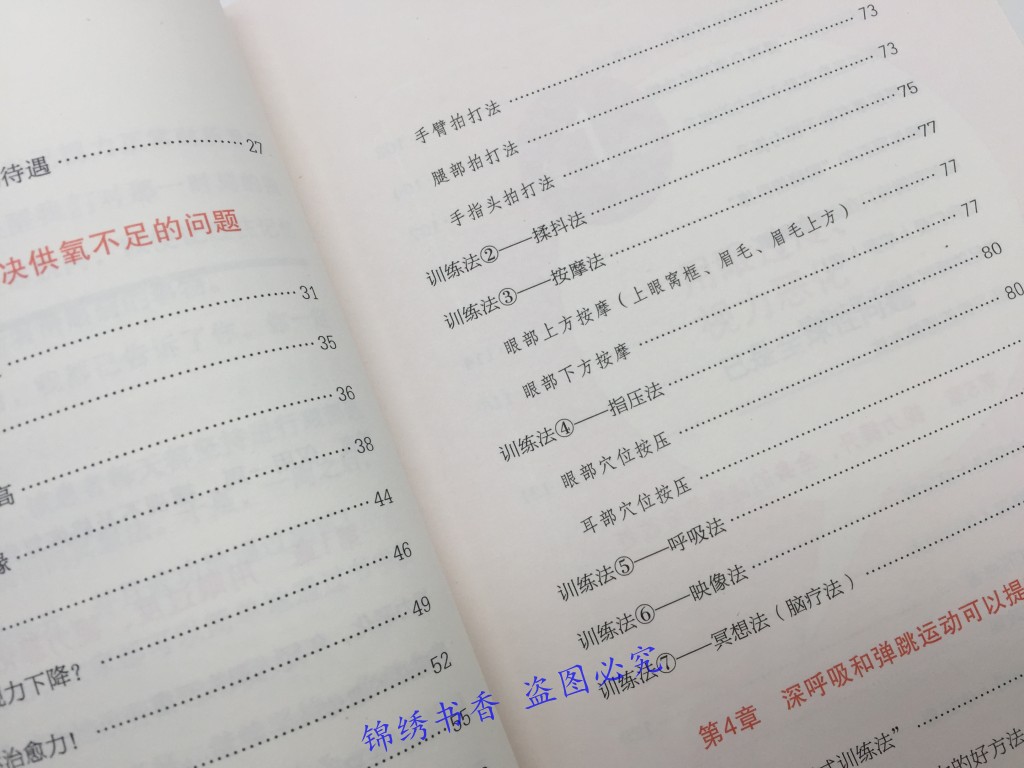 待遇 27
决供氧不足的问题
31
35
36
高 38
44
46
力下降？ 49
治愈力！ 52
55
手臂拍打法 73
腿部拍打法 73
手指头拍打法 75
训练法②——揉抖法 77
训练法③——按摩法 77
眼部上方按摩（上眼窝框、眉毛、眉毛上方） 77
眼部下方按摩 80
训练法④——指压法 80
眼部穴位按压
耳部穴位按压
训练法⑤——呼吸法
训练法⑥——映像法
训练法⑦——冥想法（脑疗法）
第4章 深呼吸和弹跳运动可以提
式训练法”
的好方法
锦绣书香 盗图必究